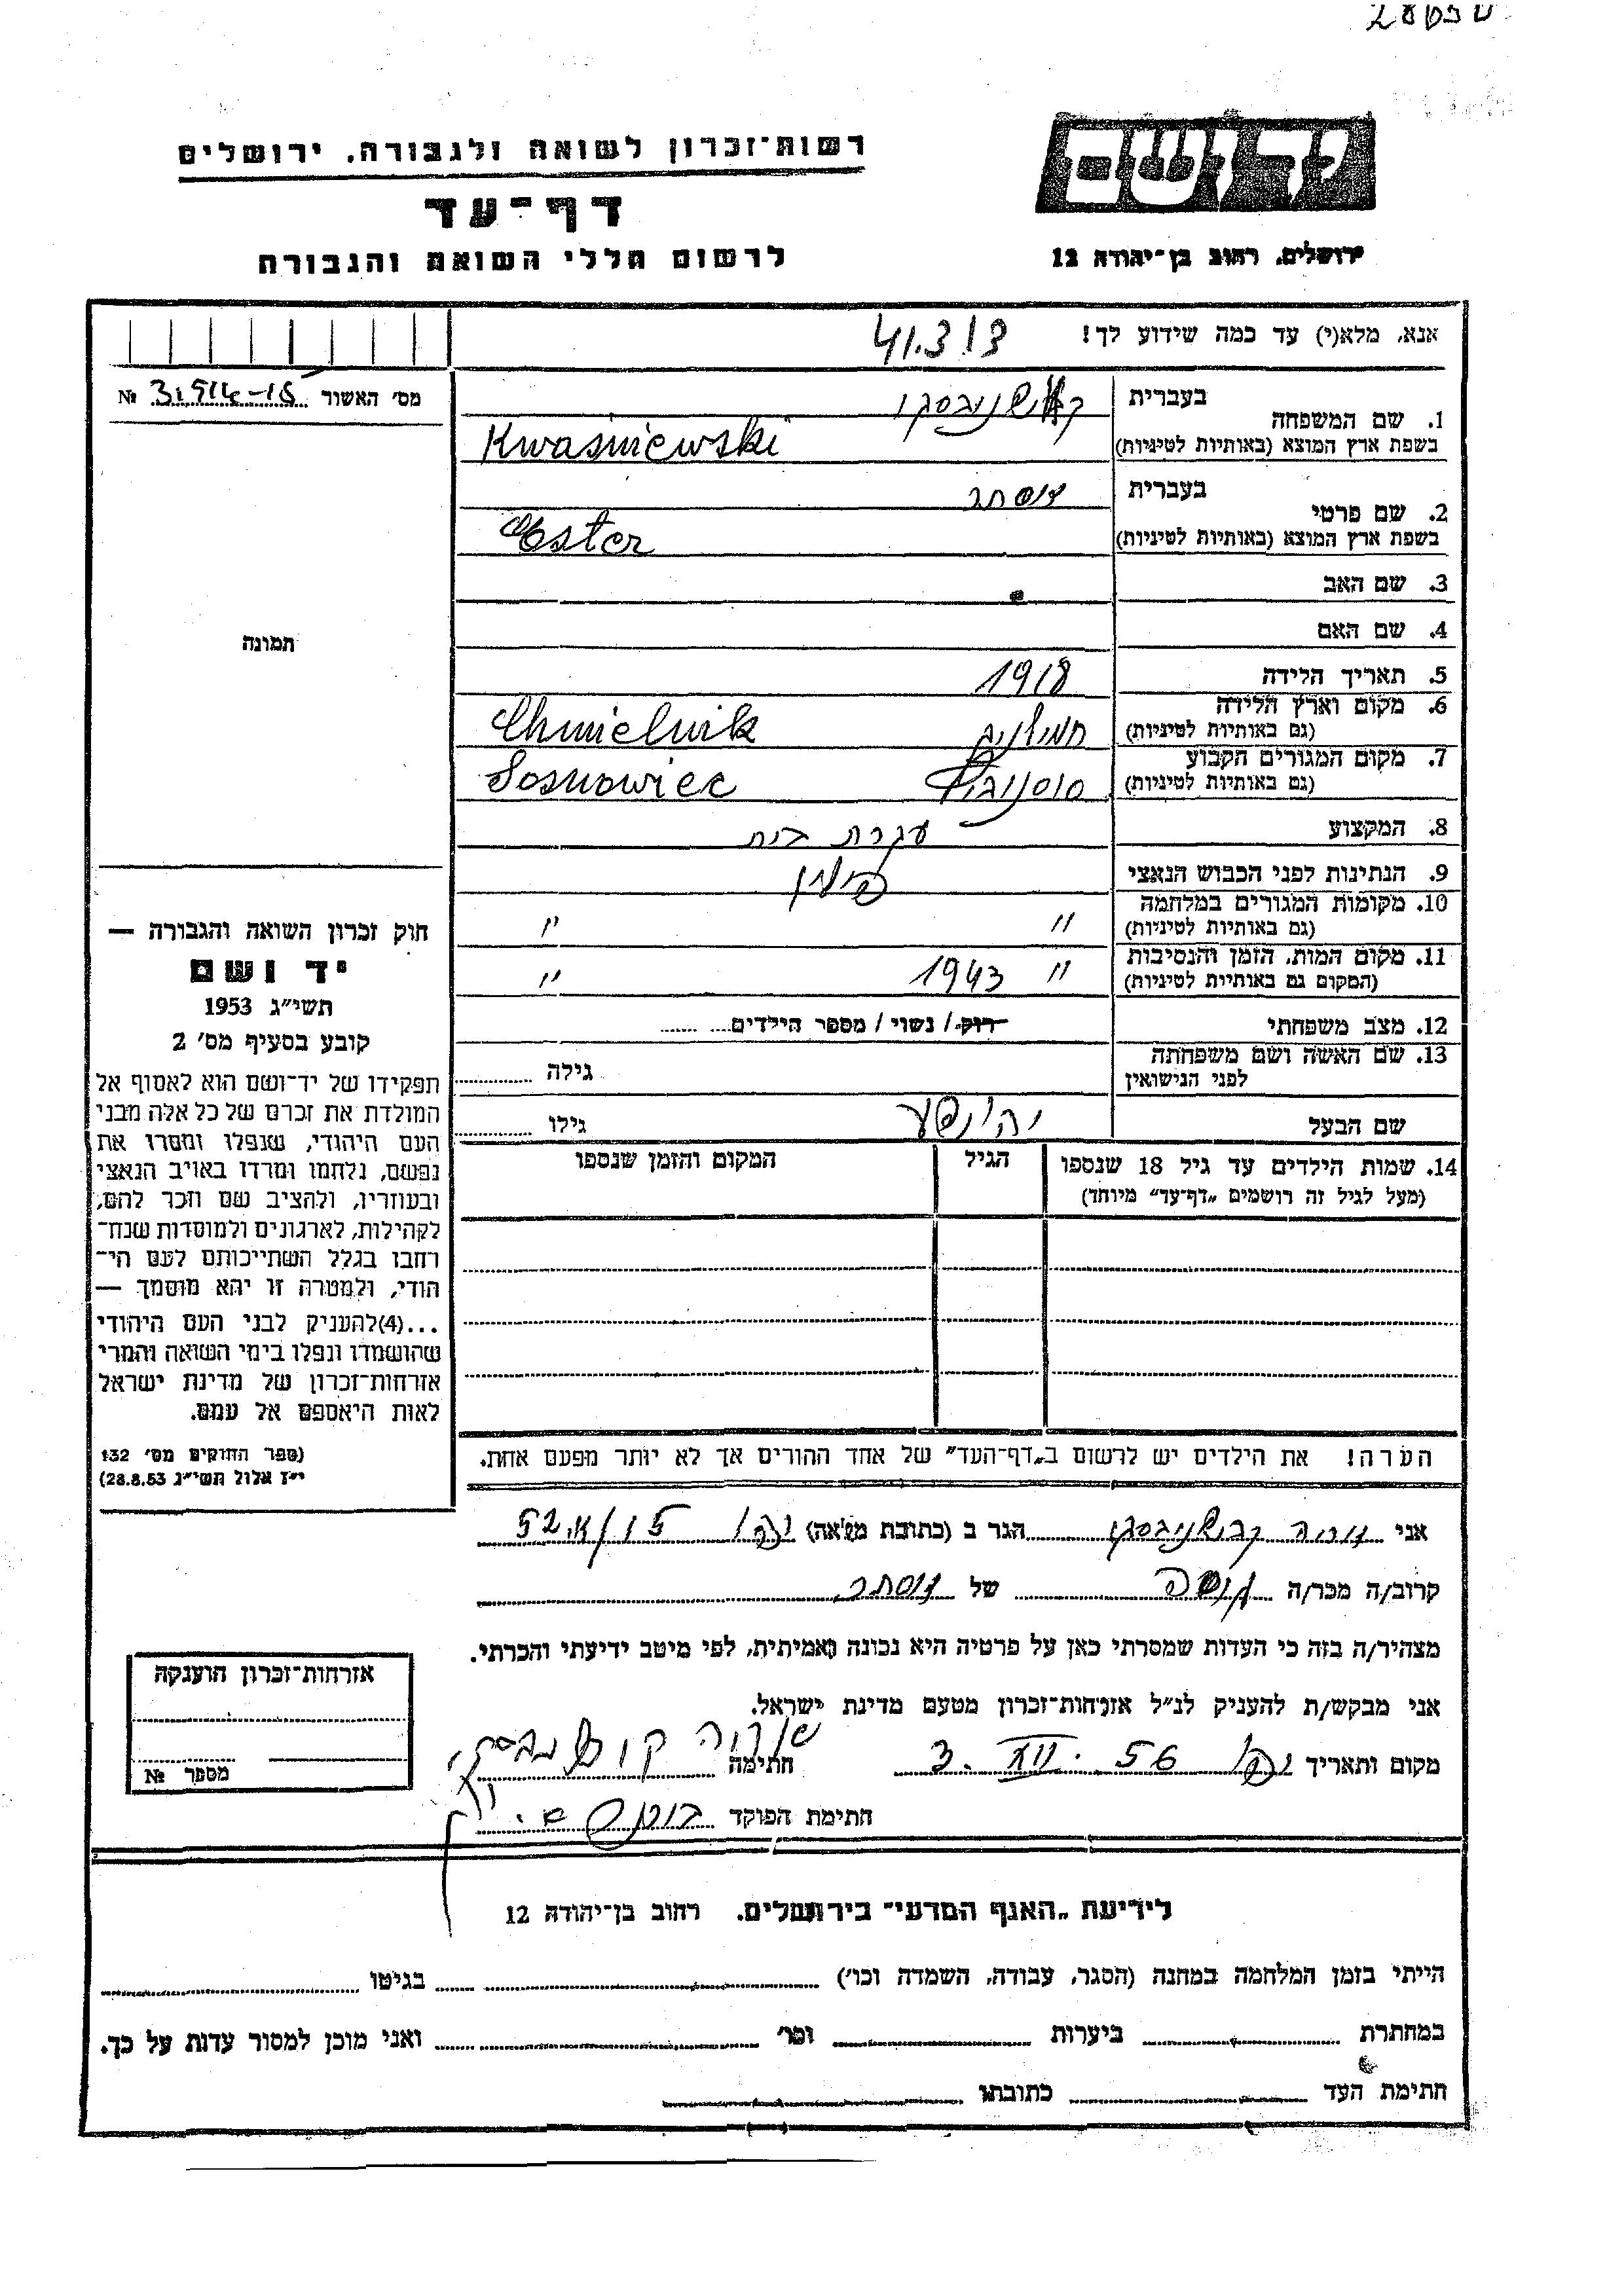 רשות־זכרון לשואה ולגבורה, ירושלים
דף־עד
לרשום חללי השואה והגבורה
ירושלים, רחוב בן־יהודה 12
אנא, מלא(י) עד כמה שידוע לך!
41.3/3
מס׳ האשור № 31514-15
תמונה
חוק זכרון השואה והגבורה —
יד ושם
תשי״ג 1953
קובע בסעיף מס׳ 2
תפקידו של יד־ושם הוא לאסוף אל
המולדת את זכרם של כל אלה מבני
העם היהודי, שנפלו ומסרו את
נפשם, נלחמו ומרדו באויב הנאצי
ובעוזריו, ולהציב שם וזכר להם,
לקהילות, לארגונים ולמוסדות שנח־
רבו בגלל השתייכותם לעם הי־
הודי, ולמטרה זו יהא מוסמך —
...(4)להעניק לבני העם היהודי
שהושמדו ונפלו בימי השואה והמרי
אזרחות־זכרון של מדינת ישראל
לאות היאספם אל עמם.
(ספר החוקים מס׳ 132
י״ז אלול תשי״ג 28.8.53)
1. שם המשפחה
בעברית
בשפת ארץ המוצא (באותיות לטיניות) Kwaśniewski
2. שם פרטי
בעברית אסתר
בשפת ארץ המוצא (באותיות לטיניות) Ester
3. שם האב
4. שם האם
5. תאריך הלידה 1918
6. מקום וארץ הלידה
(גם באותיות לטיניות) חמילניק Chmielnik
7. מקום המגורים הקבוע
(גם באותיות לטיניות) סוסנוביץ Sosnowiec
8. המקצוע עקרת בית
9. הנתינות לפני הכבוש הנאצי פולין
10. מקומות המגורים במלחמה
(גם באותיות לטיניות) " "
11. מקום המות, הזמן והנסיבות
(המקום גם באותיות לטיניות) " 1943 "
12. מצב משפחתי רוק / נשוי / מספר הילדים
13. שם האשה ושם משפחתה
לפני הנישואין גילה
שם הבעל יהושע גילו
14. שמות הילדים עד גיל 18 שנספו
(מעל לגיל זה רושמים „דף־עד״ מיוחד)
הגיל
המקום והזמן שנספו
הערה! את הילדים יש לרשום ב„דף־העד״ של אחד ההורים אך לא יותר מפעם אחת.
אני קוושניבסקי הגר ב (כתובת מלאה) יפו
קרוב/ה מכר/ה של אסתר
מצהיר/ה בזה כי העדות שמסרתי כאן על פרטיה היא נכונה ואמיתית, לפי מיטב ידיעתי והכרתי.
אני מבקש/ת להעניק לנ״ל אזרחות־זכרון מטעם מדינת ישראל.
מקום ותאריך יפו 3. XII. 56 חתימה
חתימת הפוקד
אזרחות־זכרון הוענקה
מספר №
לידיעת „האגף המדעי״ בירושלים, רחוב בן־יהודה 12
הייתי בזמן המלחמה במחנה (הסגר, עבודה, השמדה וכו׳) בגיטו
במחתרת ביערות וכו׳ ואני מוכן למסור עדות על כך.
חתימת העד כתובתו